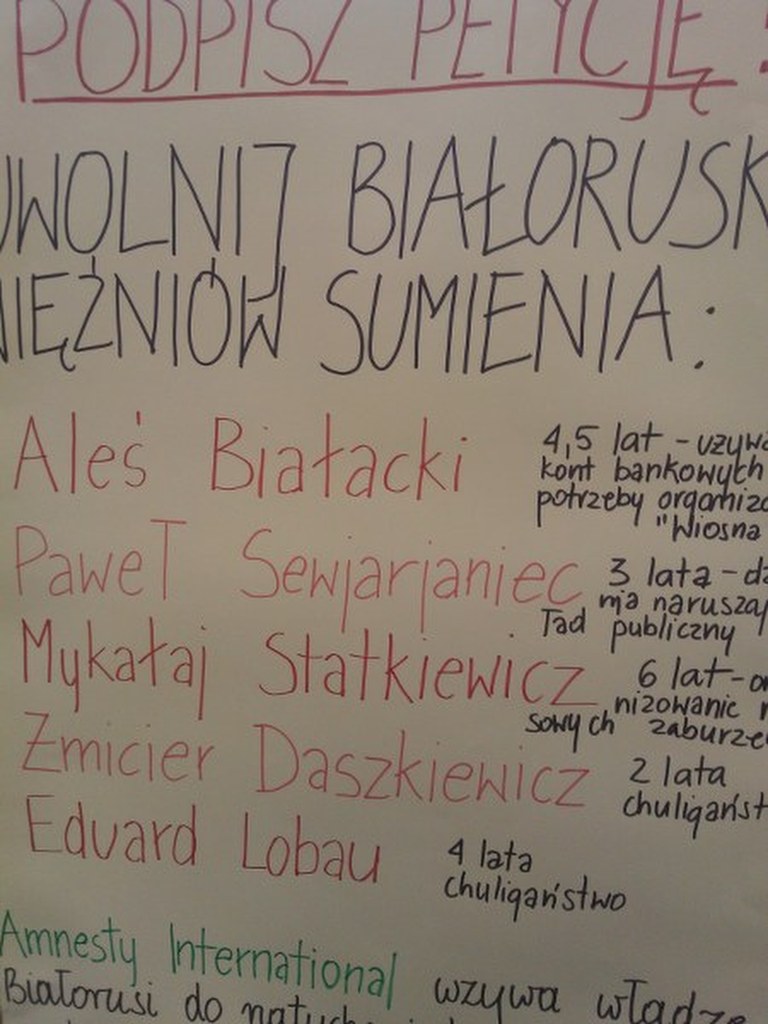 PODPISZ PETYCJĘ!
UWOLNIJ BIAŁORUSK
WIĘŹNIÓW SUMIENIA:
Aleś Białacki 4,5 lat - używa
kont bankowych
potrzeby organiza
"Wiosna
Paweł Sewjarjaniec 3 lata - dz
nia naruszaj
ład publiczny
Mykałaj Statkiewicz 6 lat - or
nizowanie m
sowych zaburze
Zmicier Daszkiewicz 2 lata
chuligańst
Eduard Lobau 4 lata
chuligaństwo
Amnesty International wzywa władze
Białorusi do natych